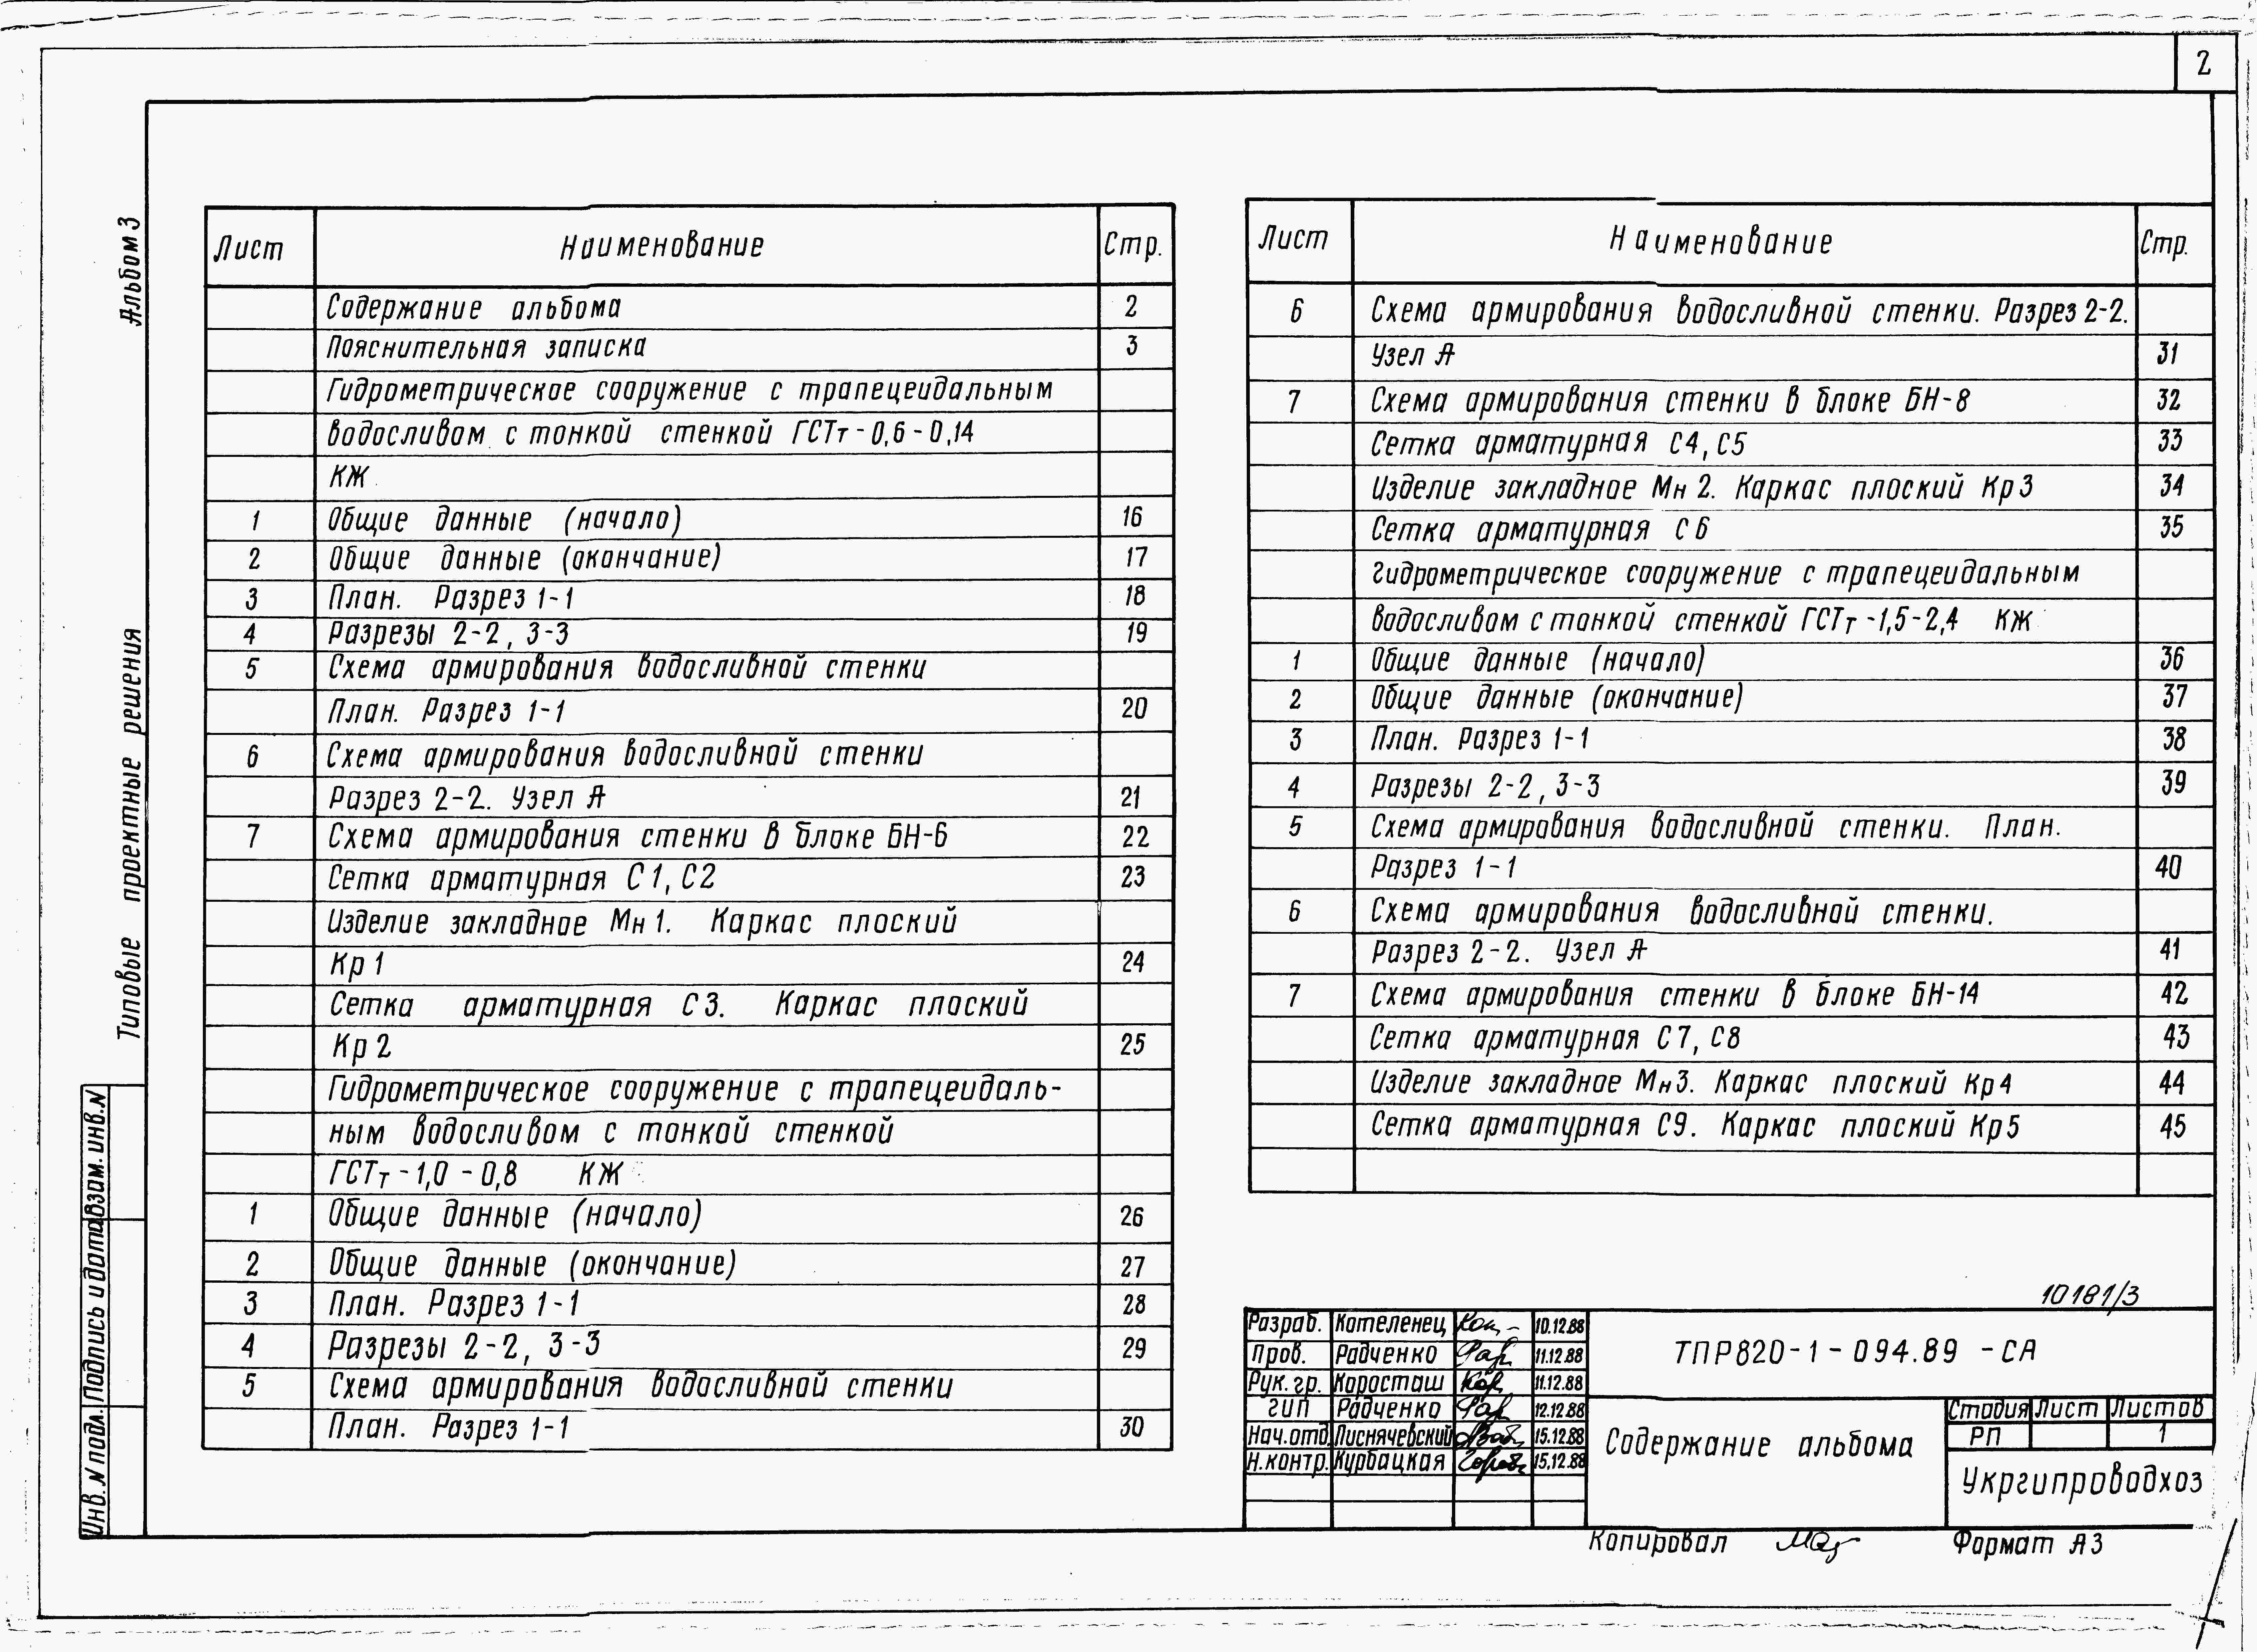 2
Альбом 3
Типовые проектные решения
Взам. инв. N
Подпись и дата
Инв. N подл.
Лист Наименование Стр.
Содержание альбома 2
Пояснительная записка 3
Гидрометрическое сооружение с трапецеидальным
водосливом с тонкой стенкой ГСТт-0,6-0,14
КЖ
1 Общие данные (начало) 16
2 Общие данные (окончание) 17
3 План. Разрез 1-1 18
4 Разрезы 2-2, 3-3 19
5 Схема армирования водосливной стенки
План. Разрез 1-1 20
6 Схема армирования водосливной стенки
Разрез 2-2. Узел А 21
7 Схема армирования стенки в блоке БН-6 22
Сетка арматурная С1, С2 23
Изделие закладное Мн 1. Каркас плоский
Кр 1 24
Сетка арматурная С 3. Каркас плоский
Кр 2 25
Гидрометрическое сооружение с трапецеидаль-
ным водосливом с тонкой стенкой
ГСТт-1,0-0,8 КЖ
1 Общие данные (начало) 26
2 Общие данные (окончание) 27
3 План. Разрез 1-1 28
4 Разрезы 2-2, 3-3 29
5 Схема армирования водосливной стенки
План. Разрез 1-1 30
Лист Наименование Стр.
6 Схема армирования водосливной стенки. Разрез 2-2.
Узел А 31
7 Схема армирования стенки в блоке БН-8 32
Сетка арматурная С4, С5 33
Изделие закладное Мн 2. Каркас плоский Кр 3 34
Сетка арматурная С 6 35
Гидрометрическое сооружение с трапецеидальным
водосливом с тонкой стенкой ГСТт-1,5-2,4 КЖ
1 Общие данные (начало) 36
2 Общие данные (окончание) 37
3 План. Разрез 1-1 38
4 Разрезы 2-2, 3-3 39
5 Схема армирования водосливной стенки. План.
Разрез 1-1 40
6 Схема армирования водосливной стенки.
Разрез 2-2. Узел А 41
7 Схема армирования стенки в блоке БН-14 42
Сетка арматурная С7, С8 43
Изделие закладное Мн3. Каркас плоский Кр4 44
Сетка арматурная С9. Каркас плоский Кр5 45
10181/3
Разраб. Котеленец 10.12.88
Пров. Радченко 11.12.88
Рук. гр. Коросташ 11.12.88
ГИП Радченко 12.12.88
Нач. отд. Лиснячевский 15.12.88
Н. контр. Курбацкая 15.12.88
ТПР820-1-094.89 -СА
Содержание альбома
Стадия Лист Листов
РП 1
Укргипроводхоз
Копировал
Формат А3